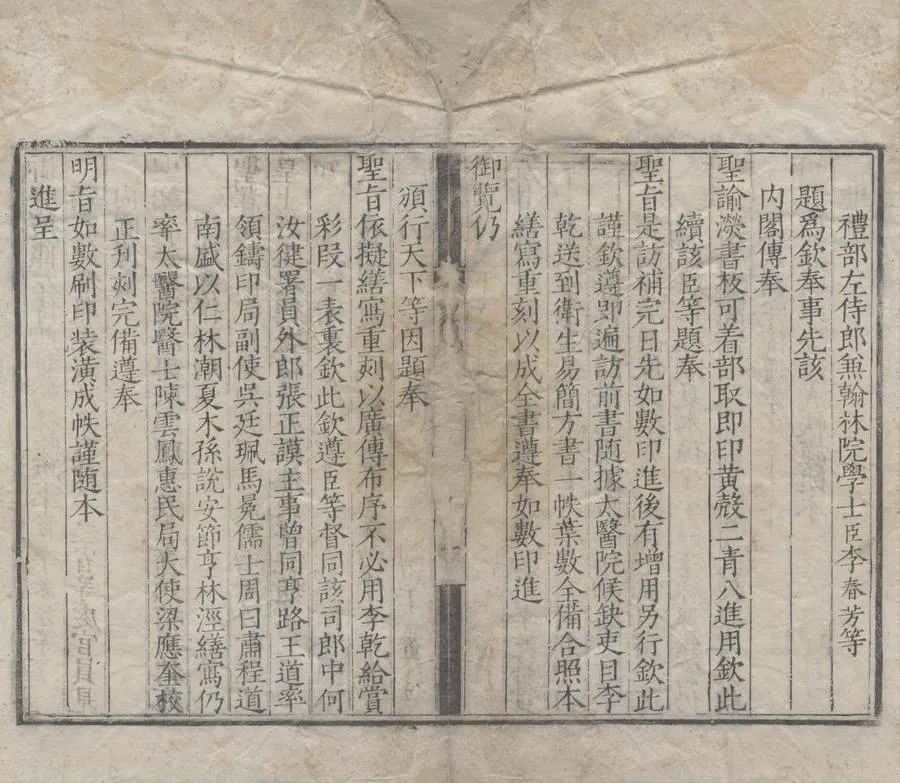 禮部左侍郎兼翰林院學士臣李春芳等
題爲欽奉事先該
內閣傳奉
聖諭濙書板可着部取即印黃殼二青八進用欽此
續該臣等題奉
聖旨是訪補完日先如數印進後有增用另行欽此
謹欽遵即遍訪前書随據太醫院候缺吏目李
乾送到衛生易簡方書一帙葉數全備合照本
繕寫重刻以成全書遵奉如數印進
御覽仍
頒行天下等因題奉
聖旨依擬繕寫重刻以廣傳布序不必用李乾給賞
彩段一表裏欽此欽遵臣等督同該司郎中何
汝健署員外郎張正謨主事曾同亨路王道率
領鑄印局副使吳廷珮馬冕儒士周曰肅程道
南盛以仁林潮夏木孫說安節亨林涇繕寫仍
率太醫院醫士陳雲鳳惠民局大使梁應奎校
正刋刻完備遵奉
明旨如數刷印装潢成帙謹随本
進呈